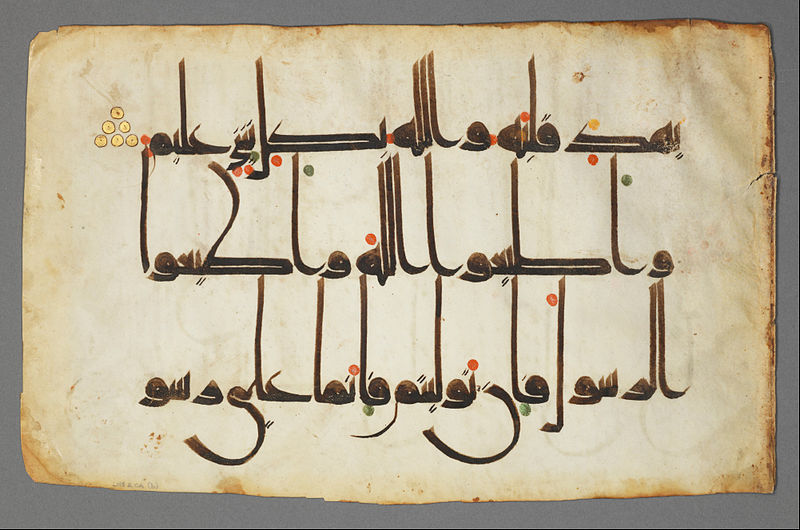 يهد قلبه والله بكل شي عليم
واطيعوا الله واطيعوا
الرسول فان توليتم فانما على رسو
LNS 2 CA (b)